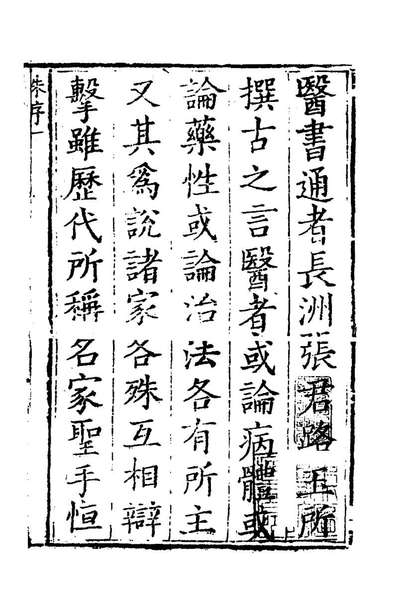 醫書通者長洲張君路玉所
撰古之言醫者或論病體或
論藥性或論治法各有所主
又其爲說諸家各殊互相辯
擊雖歷代所稱名家聖手恒
朱序一